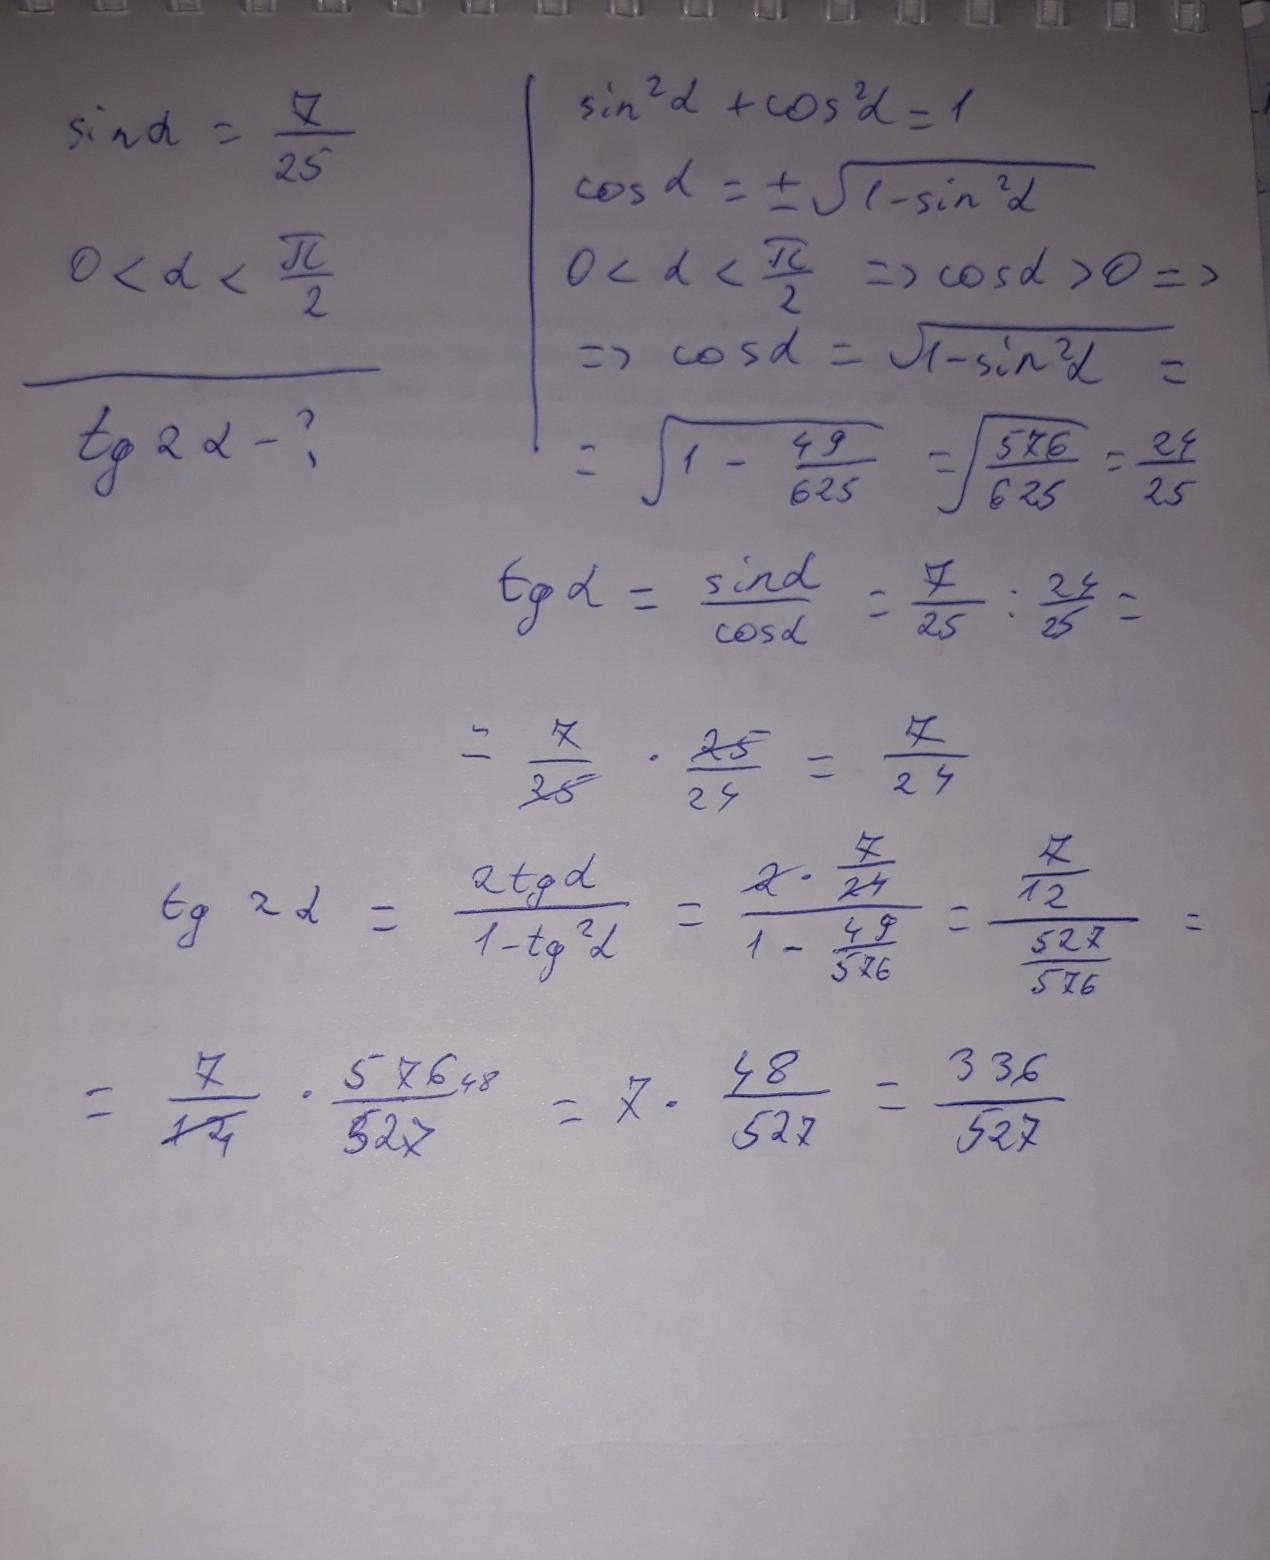 sinα = 7/25
0 < α < π/2
tg 2α - ?
sin²α + cos²α = 1
cos α = ± √(1 - sin²α)
0 < α < π/2 => cosα > 0 =>
=> cosα = √(1 - sin²α) =
= √(1 - 49/625) = √(576/625) = 24/25
tg α = sinα/cosα = 7/25 : 24/25 =
= 7/25 · 25/24 = 7/24
tg 2α = 2tgα/(1 - tg²α) = (2 · 7/24)/(1 - 49/576) = (7/12)/(527/576) =
= 7/12 · 576 48/527 = 7 · 48/527 = 336/527